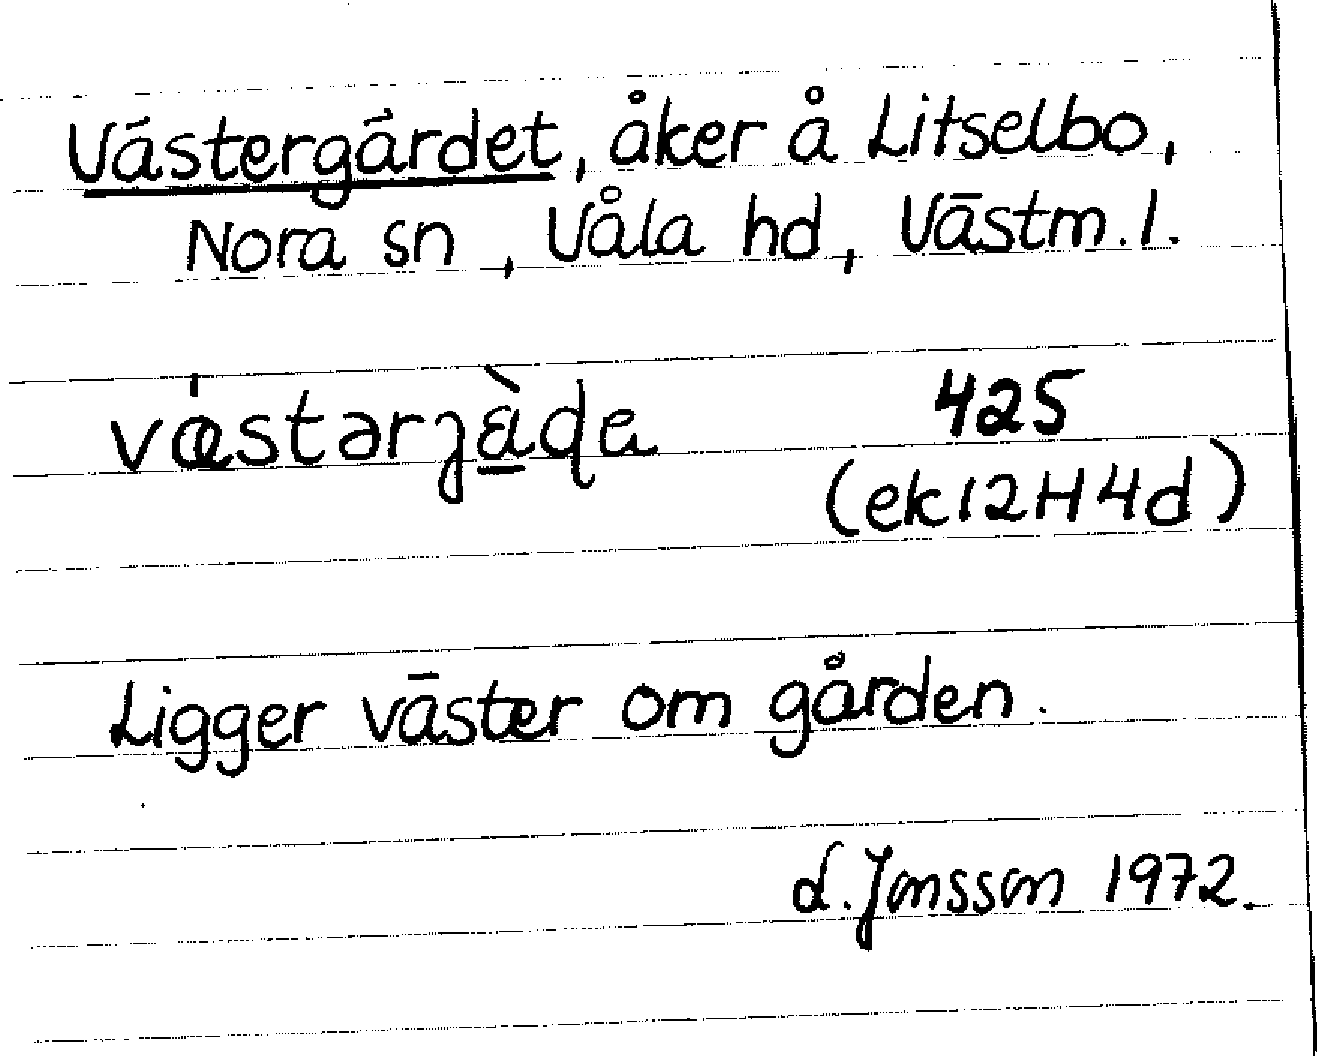 Västergärdet, åker å Litselbo,
Nora sn, Våla hd, Västm. l.
væ̍stərjæ̀ɖa 425
(ek 12H4d)
Ligger väster om gården.
L. Jonsson 1972.